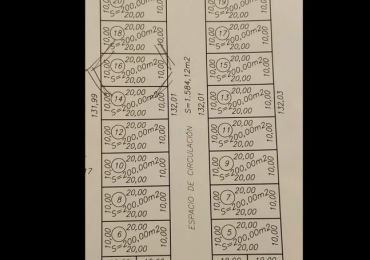 20
S=200,00m2
20,00
10,00
18
10,00
20,00
S=200,00m2
20,00
10,00
16
10,00
20,00
S=200,00m2
20,00
10,00
14
10,00
20,00
S=200,00m2
20,00
10,00
12
10,00
20,00
S=200,00m2
20,00
10,00
10
10,00
20,00
S=200,00m2
20,00
10,00
8
10,00
20,00
S=200,00m2
20,00
10,00
6
10,00
20,00
S=200,00m2
20,00
10,00
131,99
17
132,01
ESPACIO DE CIRCULACIÓN S=1.584,12m2
132,01
19
S=200,00m2
20,00
10,00
17
10,00
20,00
S=200,00m2
20,00
10,00
15
10,00
20,00
S=200,00m2
20,00
10,00
13
10,00
20,00
S=200,00m2
20,00
10,00
11
10,00
20,00
S=200,00m2
20,00
10,00
9
10,00
20,00
S=200,00m2
20,00
10,00
7
10,00
20,00
S=200,00m2
20,00
10,00
5
10,00
20,00
S=200,00m2
20,00
10,00
132,03
10,00 10,00